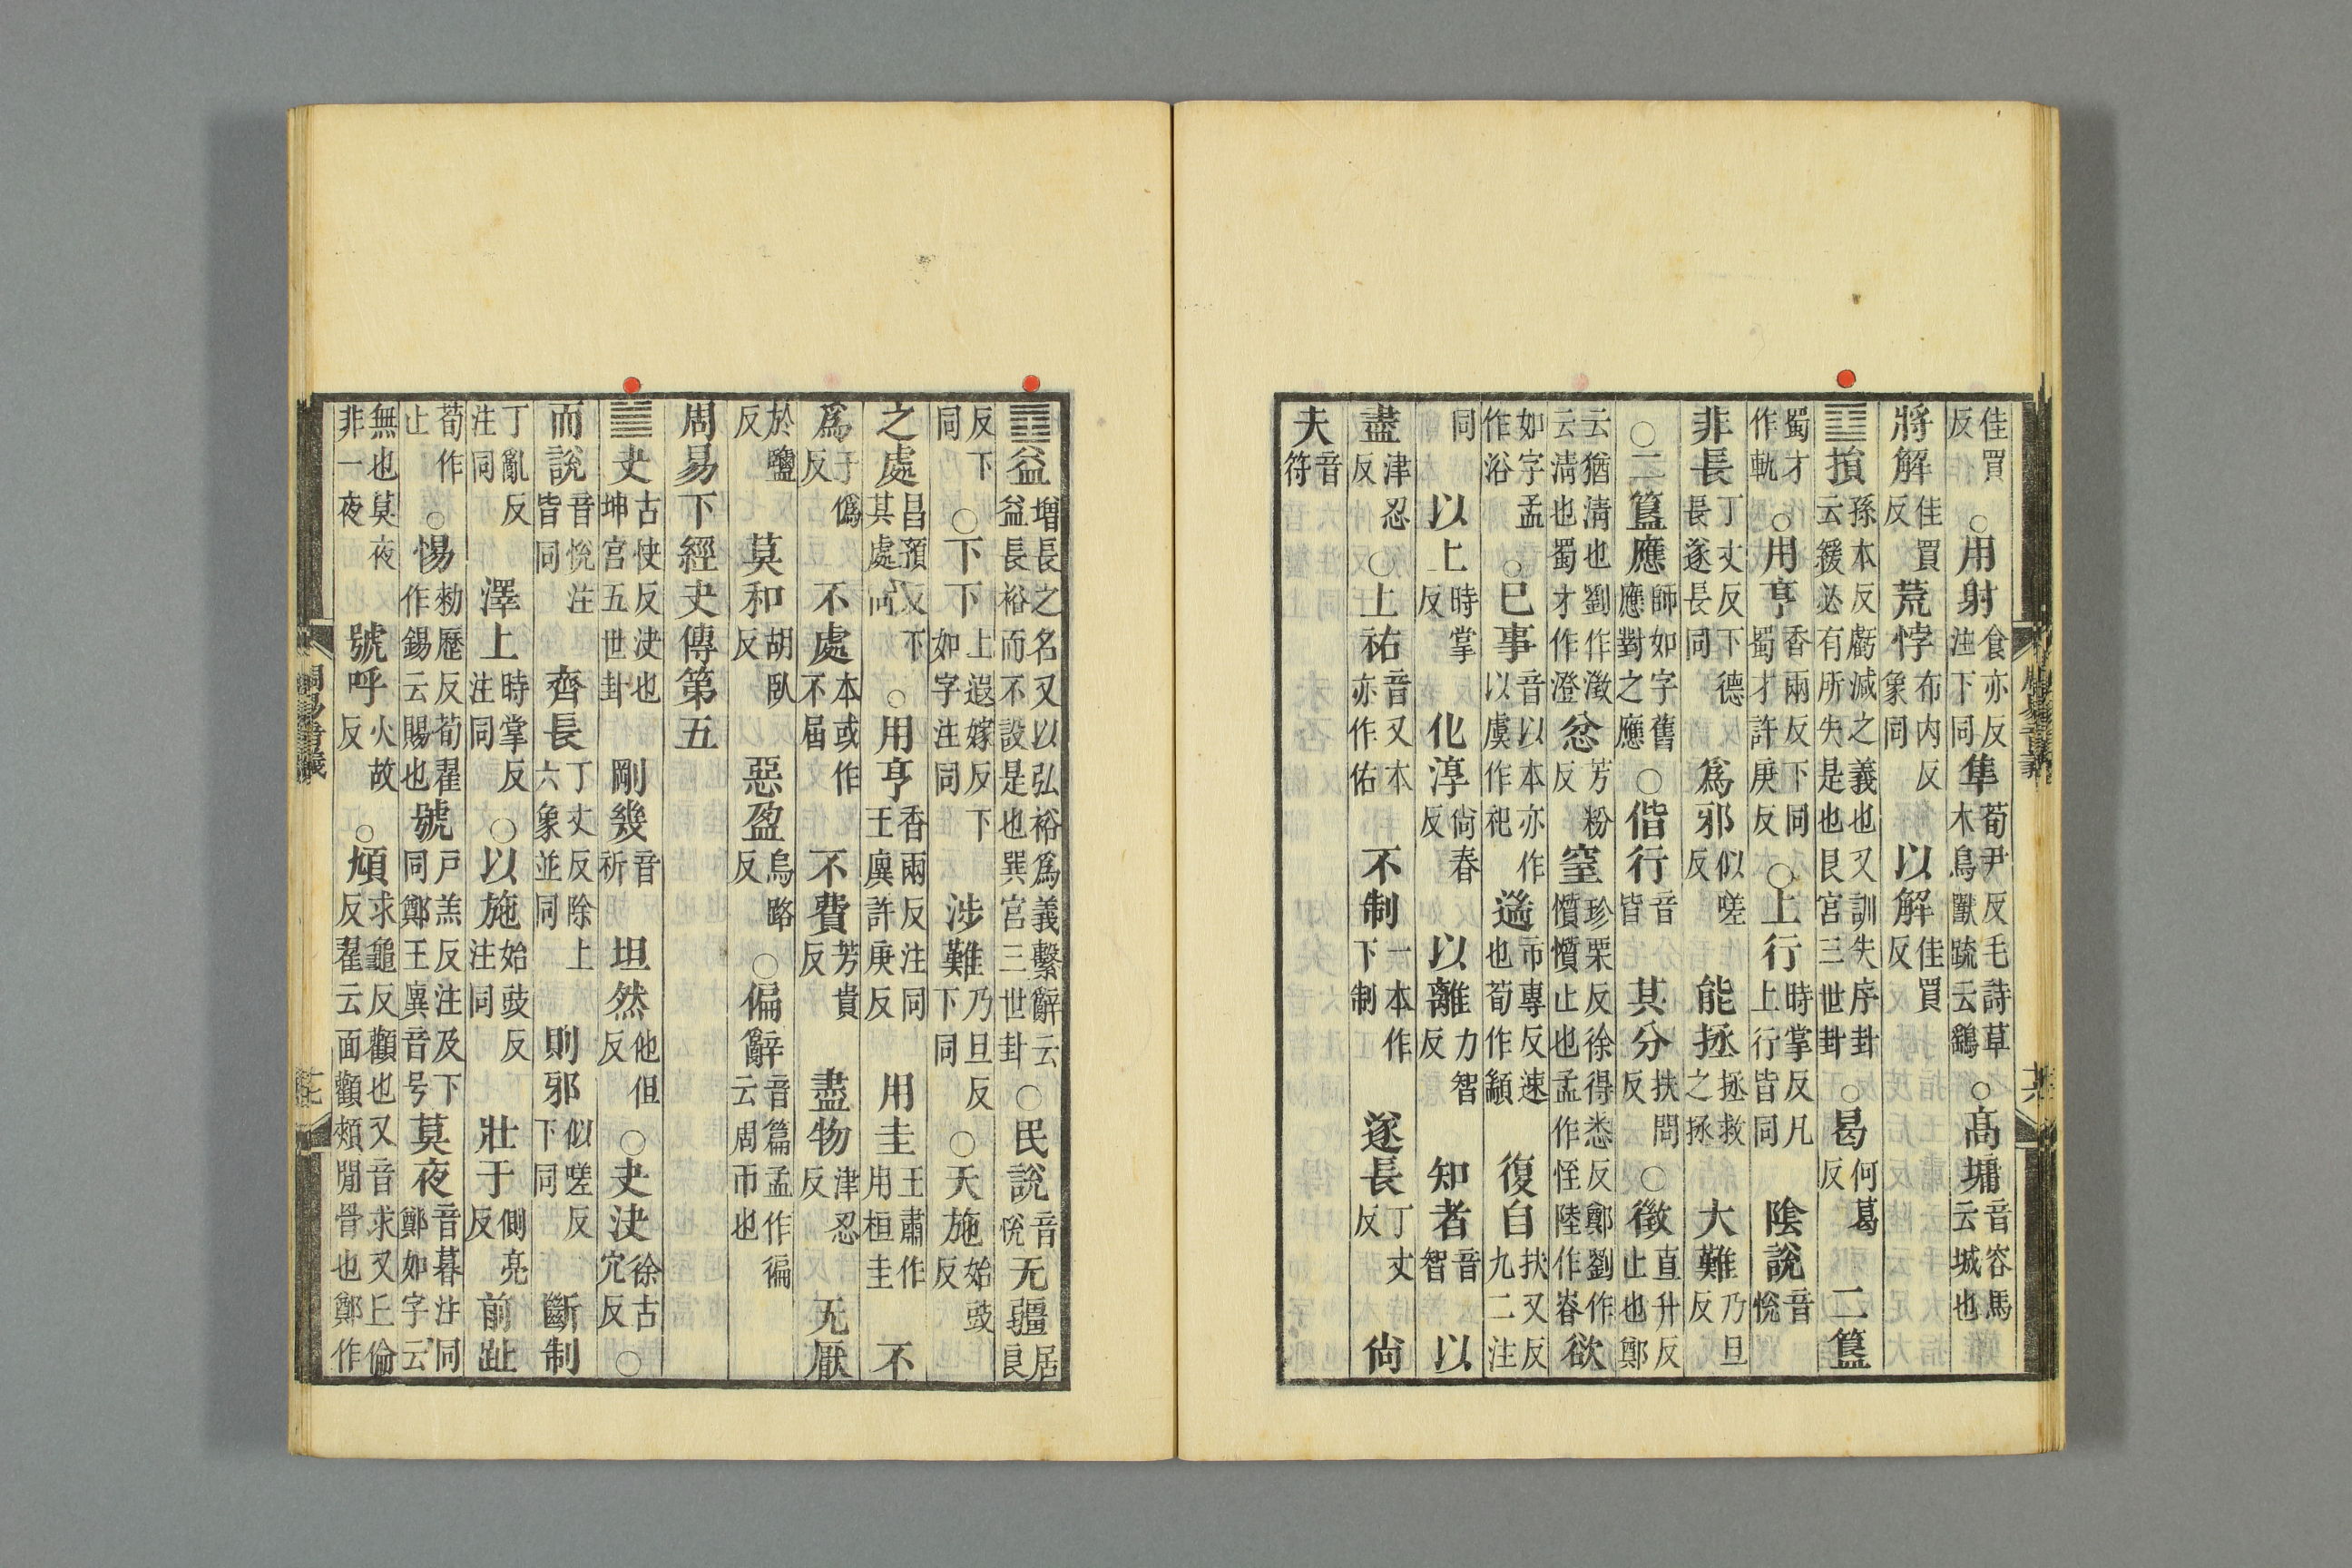 佳買反○用射食亦反注下同隼荀尹反毛詩草木鳥獸疏云鷂○高墉音容馬云城也
將解佳買反荒悖布内反象同以解佳買反
䷨損孫本反虧減之義也又訓失序卦云緩必有所失是也艮宮三世卦○曷何葛反二簋
蜀才作軌○用亨香兩反下同蜀才許庚反○上行時掌反凡上行皆同陰說音悅
非長丁丈反下德長遂長同爲邪似嗟反能拯拯救之拯大難乃旦反
○二簋應師如字舊應對之應○偕行音皆其分扶問反○徵直升反止也鄭
云猶淸也劉作澂云淸也蜀才作澄忿芳粉反窒珍栗反徐得悉反鄭劉作懫懫止也孟作恎陸作㟋欲
如字孟作浴○已事音以本亦作以虞作祀遄市專反速也荀作顓復自扶又反九二注
同以上時掌反化淳尙春反以離力智反知者音智以
盡津忍反○上祐音又本亦作佑不制一本作下制遂長丁丈反尙
夫音符
周易音義 十六
䷩益增長之名又以弘裕爲義繫辭云益長裕而不設是也巽宮三世卦○民說音悅无疆居良
反下同○下下上遐嫁反下如字注同涉難乃旦反下同○天施始豉反
之處昌預反下其處同○用亨香兩反注同王廙許庚反用圭王肅作用桓圭不
爲于僞反不處本或作不屆不費芳貴反盡物津忍反无厭
於鹽反莫和胡臥反惡盈烏路反○偏辭音篇孟作徧云周帀也
周易下經夬傳第五
䷪夬古快反決也坤宮五世卦剛幾音祈坦然他但反○夬決徐古穴反○
而說音悅注皆同齊長丁丈反除上六象並同則邪似嗟反下同斷制
丁亂反注同澤上時掌反注同○以施始豉反注同壯于側亮反前趾
荀作止○惕勑歷反荀翟作錫云賜也號戶羔反注及下同鄭王廙音号莫夜音暮注同鄭如字云
無也莫夜非一夜號呼火故反○頄求龜反顴也又音求又丘倫反翟云面顴頰閒骨也鄭作
周易音義 十七